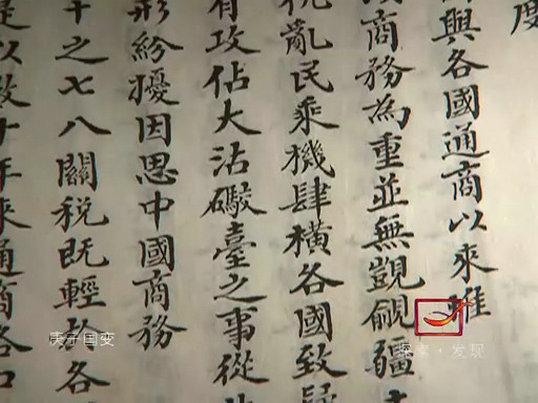 度
與各國通商以來惟
商務為重並無覬覦疆
亂民乘機肆橫各國致疑
有攻佔大沽礮臺之事從
形紛擾因思中國商務
十之七八關稅既輕於各
是以數十年來通商各口
庚子国变
探索·发现